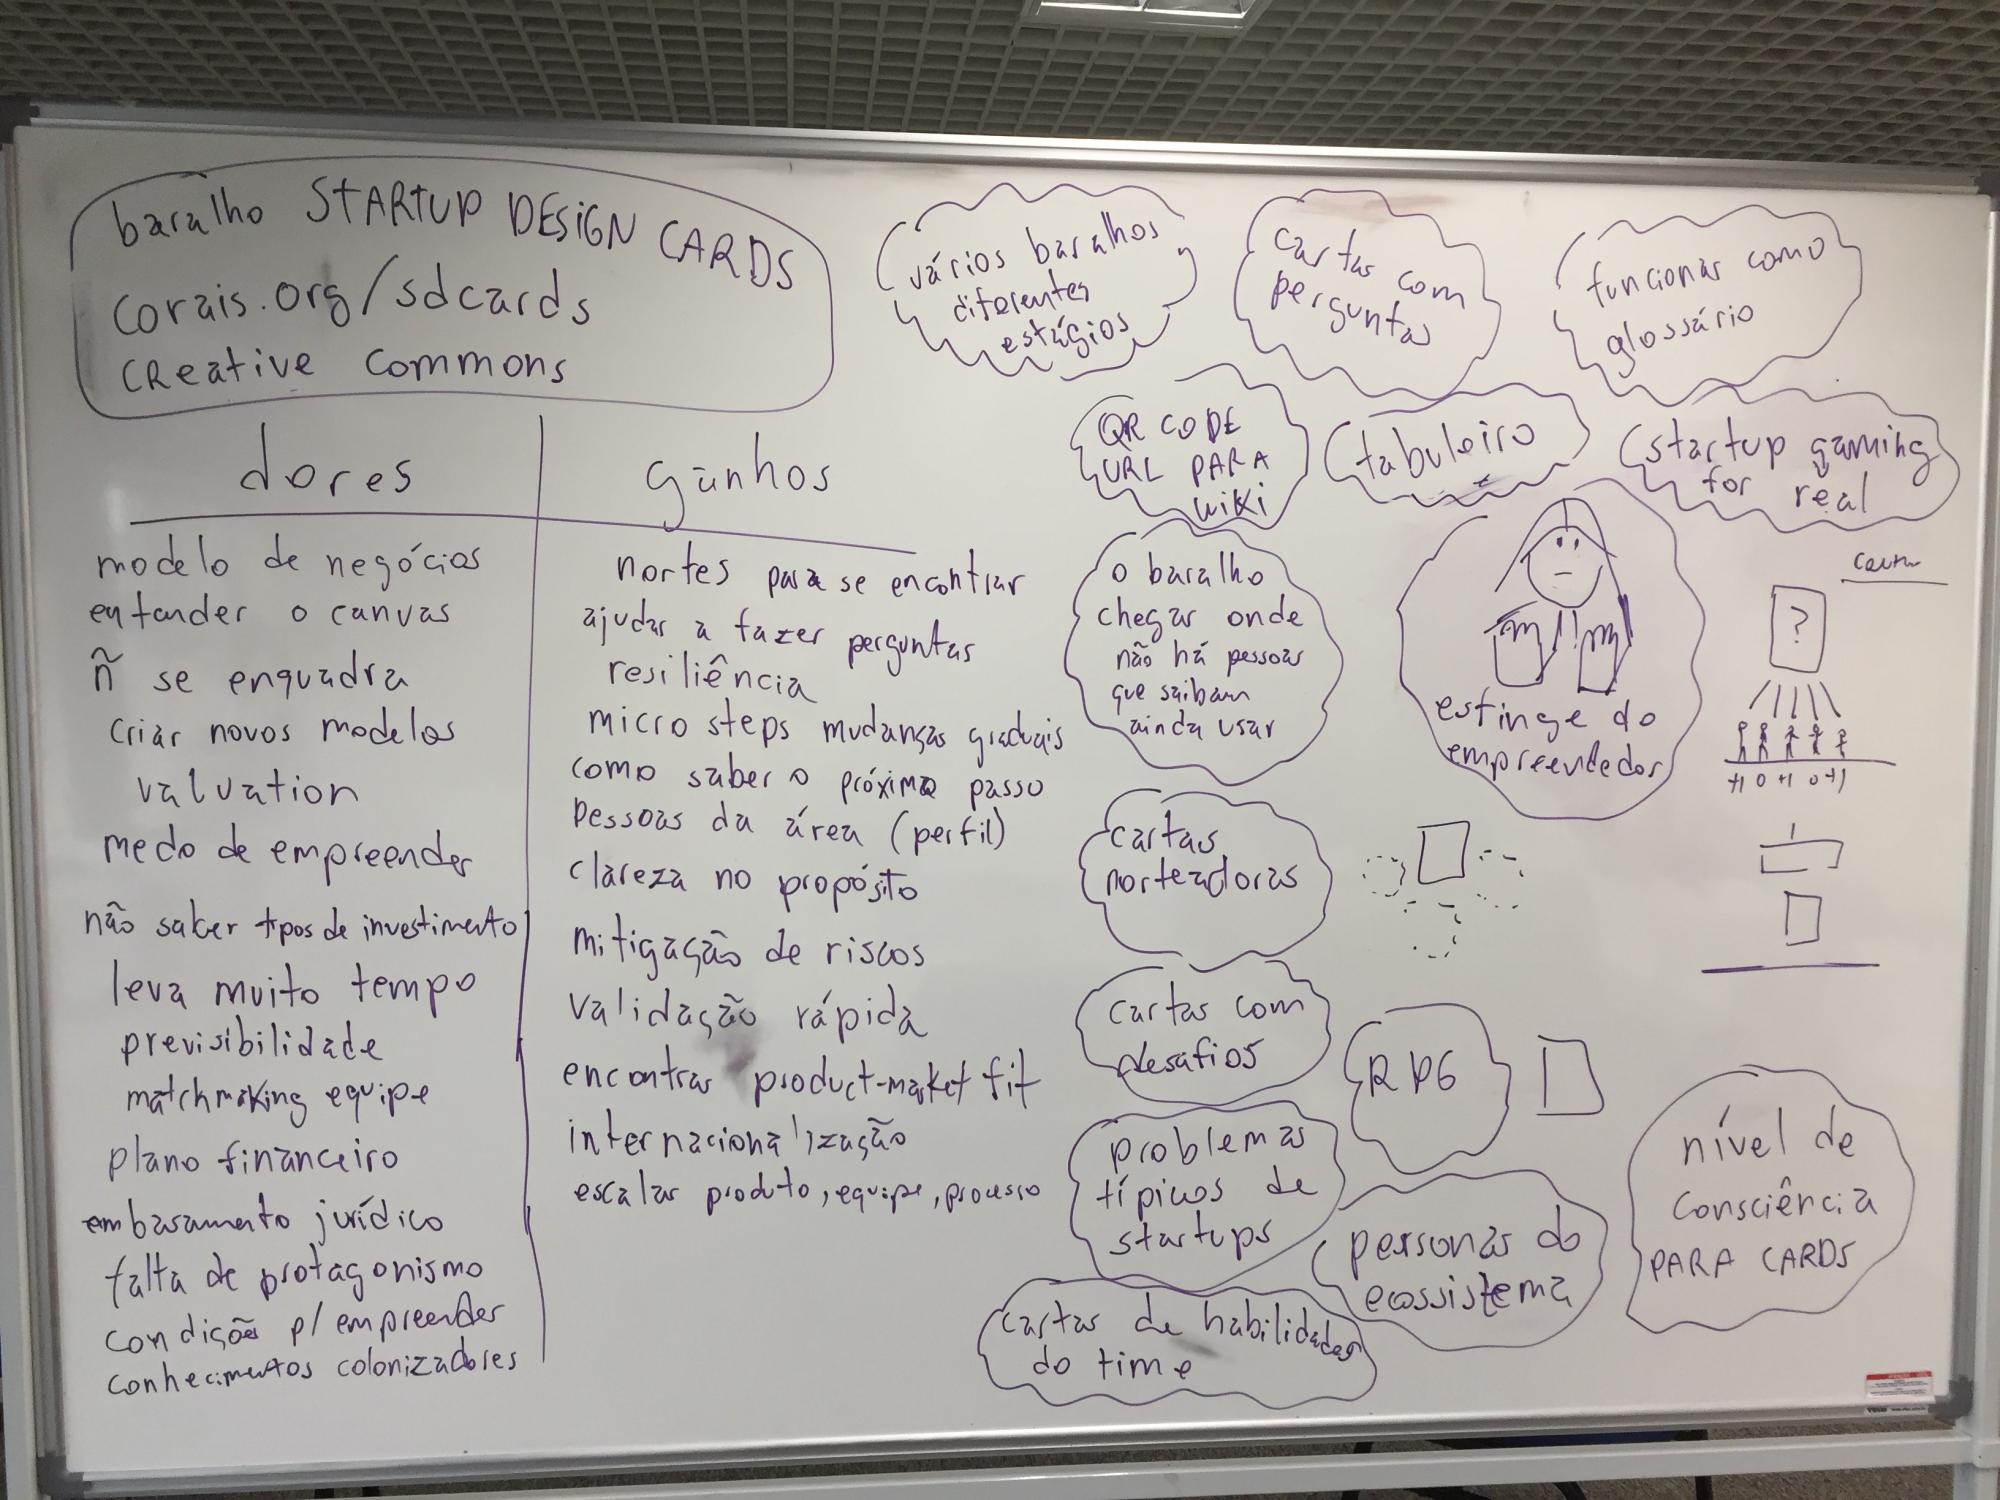 baralho STARTUP DESIGN CARDS
corais.org/sdcards
CReative commons
dores
modelo de negócios
entender o canvas
ñ se enquadra
criar novos modelos
valuation
medo de empreender
não saber tipos de investimento
leva muito tempo
previsibilidade
matchmaking equipe
plano financeiro
embasamento jurídico
falta de protagonismo
condição p/ empreender
conhecimentos colonizadores
ganhos
nortes para se encontrar
ajudar a fazer perguntas
resiliência
micro steps mudanças graduais
como saber o próximo passo
pessoas da área (perfil)
clareza no propósito
mitigação de riscos
validação rápida
encontrar product-market fit
internacionalização
escalar produto, equipe, processo
vários baralhos
diferentes
estágios
cartas com
perguntas
funcionar como
glossário
QR CODE
URL PARA
wiki
tabuleiro
startup gaming
for real
o baralho
chegar onde
não há pessoas
que saibam
ainda usar
esfinge do
empreendedor
?
+1 0 +1 0 +1
cartas
norteadoras
cartas com
desafios
RPG
problemas
típicos de
startups
personas do
ecossistema
nível de
consciência
PARA CARDS
cartas de habilidades
do time